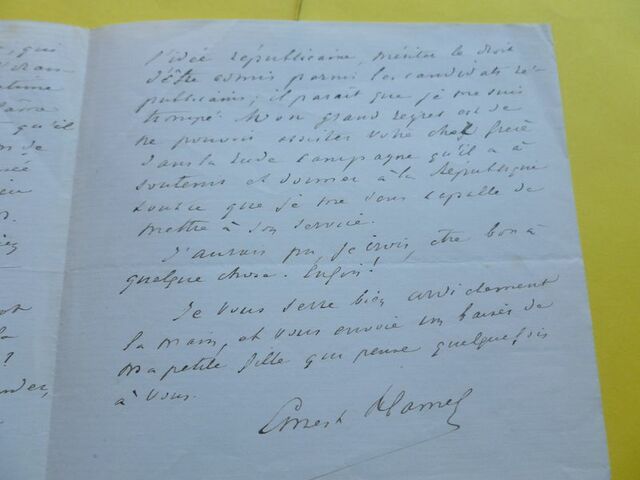 qui
qu'il
de
l'idée républicaine, mériter le droit
d'être admis parmi les candidats ré-
publicains; il parait que je me suis
trompé. Mon grand regret est de
ne pouvoir assister votre cher frère
dans la rude campagne qu'il a à
soutenir et donner à la République
tout ce que je me sens capable de
mettre à son service.
J'aurais pu, je crois, être bon à
quelque chose. Enfin!
Je vous serre bien cordialement
la main, et vous envoie un baiser de
ma petite fille qui pense quelquefois
à vous.
Ernest Hamel